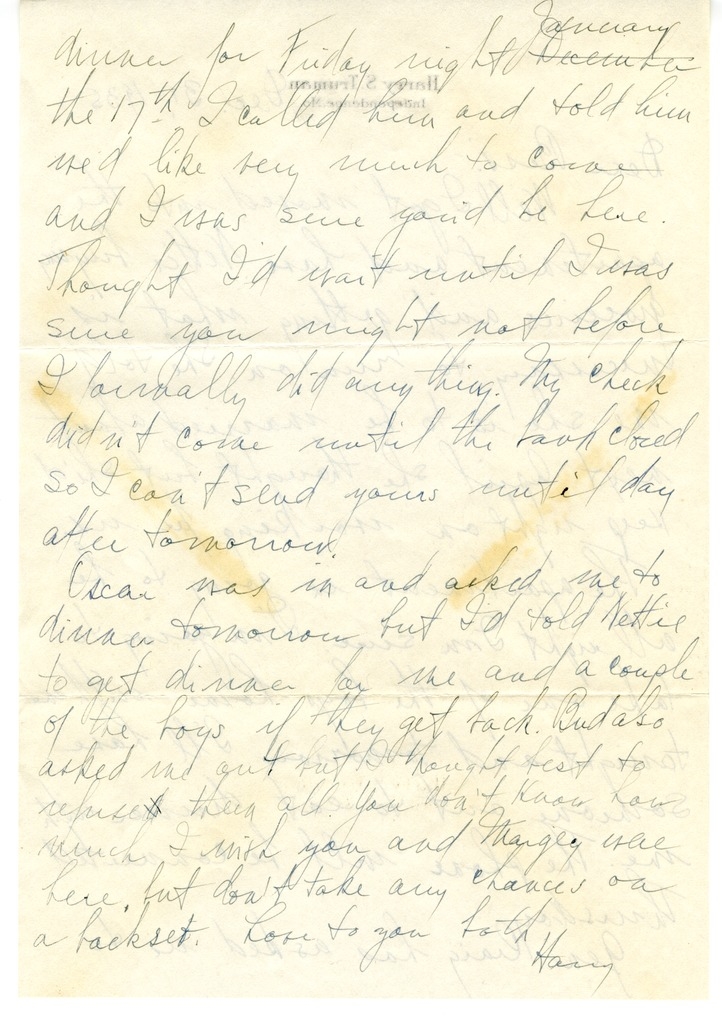 January
dinner for Friday night December
the 17th I called him and told him
we'd like very much to come
and I was sure you'd be here.
Thought I'd wait until I was
sure you might not before
I formally did anything. My check
didn't come until the bank closed
so I can't send yours until day
after tomorrow.
Oscar was in and asked me to
dinner tomorrow but I'd told Nettie
to get dinner for me and a couple
of the boys if they get back. Bud also
asked me out but I thought best to
refuse them all. You don't know how
much I wish you and Margey were
here, but don't take any chances on
a backset. Love to you both
Harry